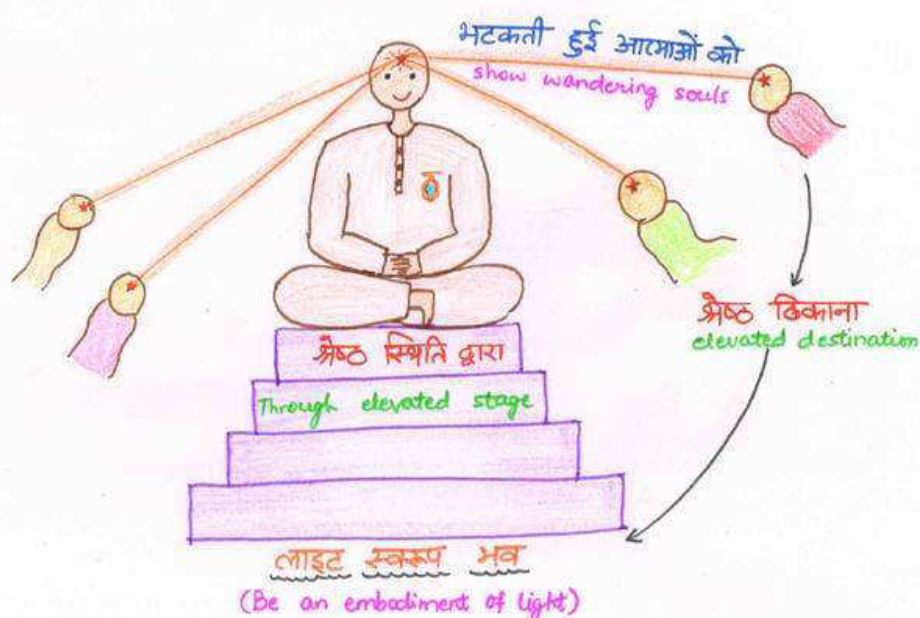 भटकती हुई आत्माओं को
show wandering souls
श्रेष्ठ ठिकाना
elevated destination
श्रेष्ठ स्थिति द्वारा
Through elevated stage
लाइट स्वरूप भव
(Be an embodiment of light)